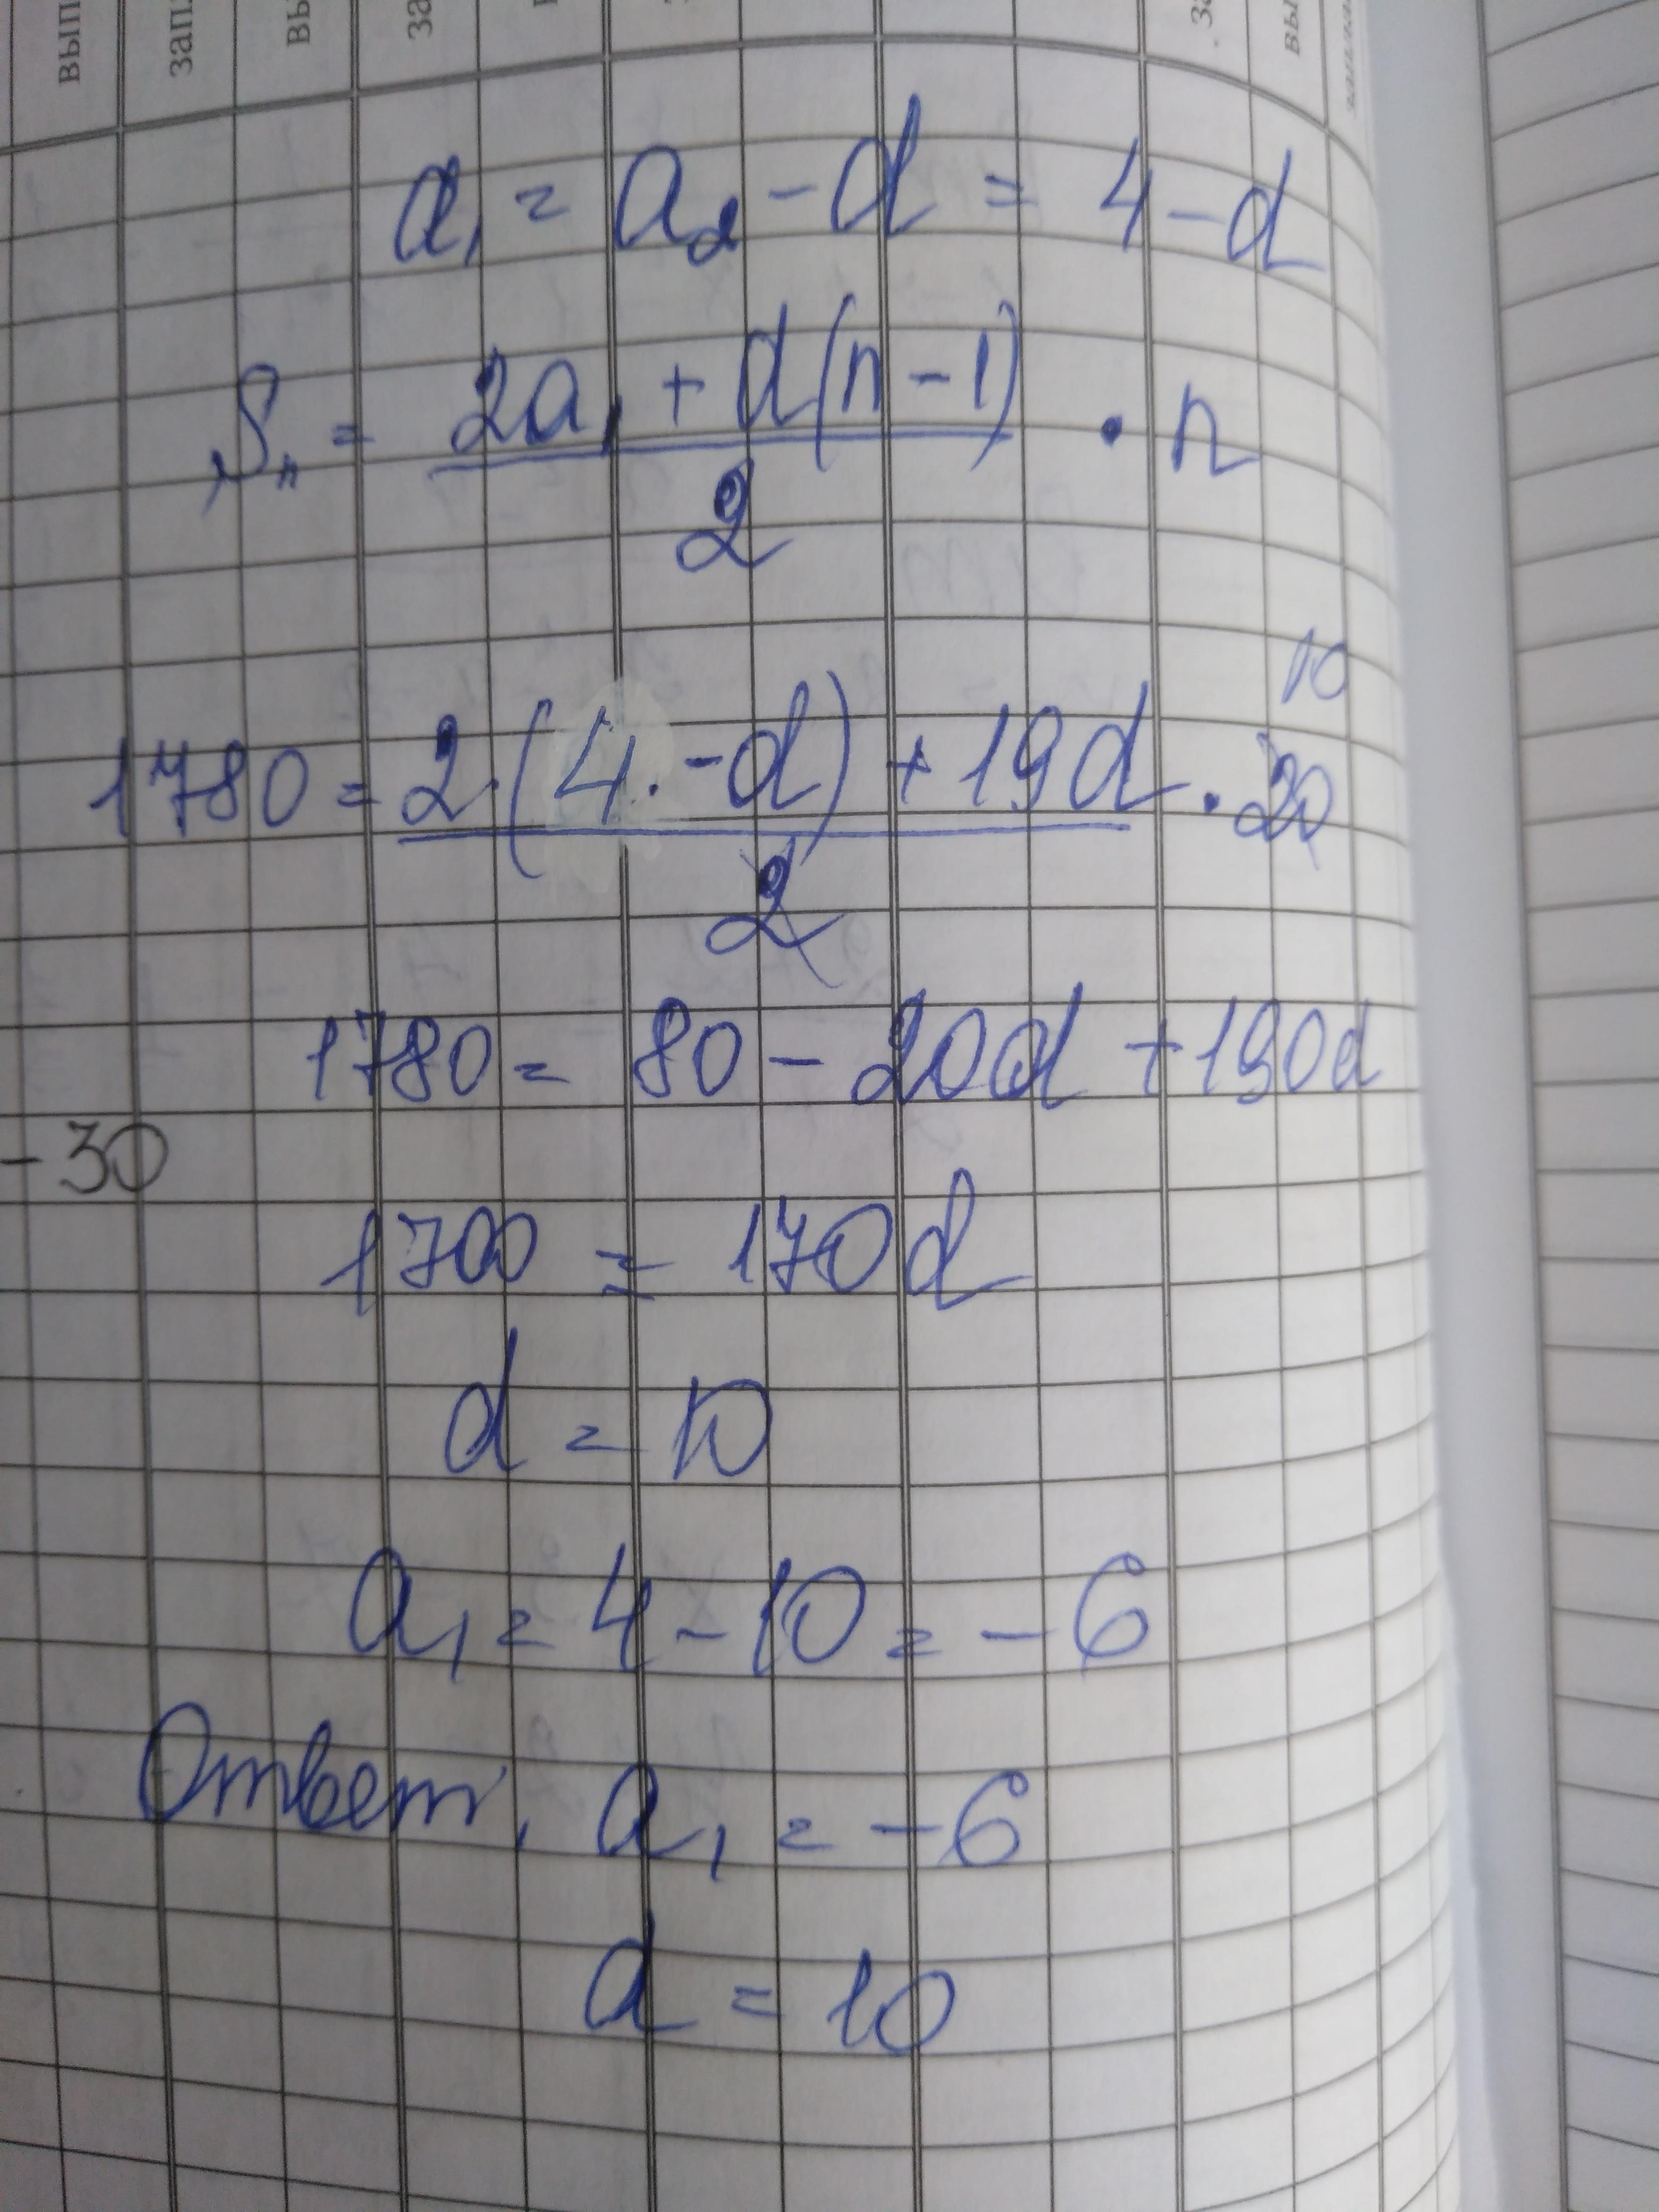 вып
зап
вы
за
за
вы
a₁ = a₂ - d = 4 - d
Sₙ = (2a₁ + d(n-1))/2 · n
10
1780 = (2·(4·-d) + 19d)/2 · 20
1780 = 80 - 20d + 190d
-30
1700 = 170d
d = 10
a₁ = 4 - 10 = -6
Ответ, a₁ = -6
d = 10